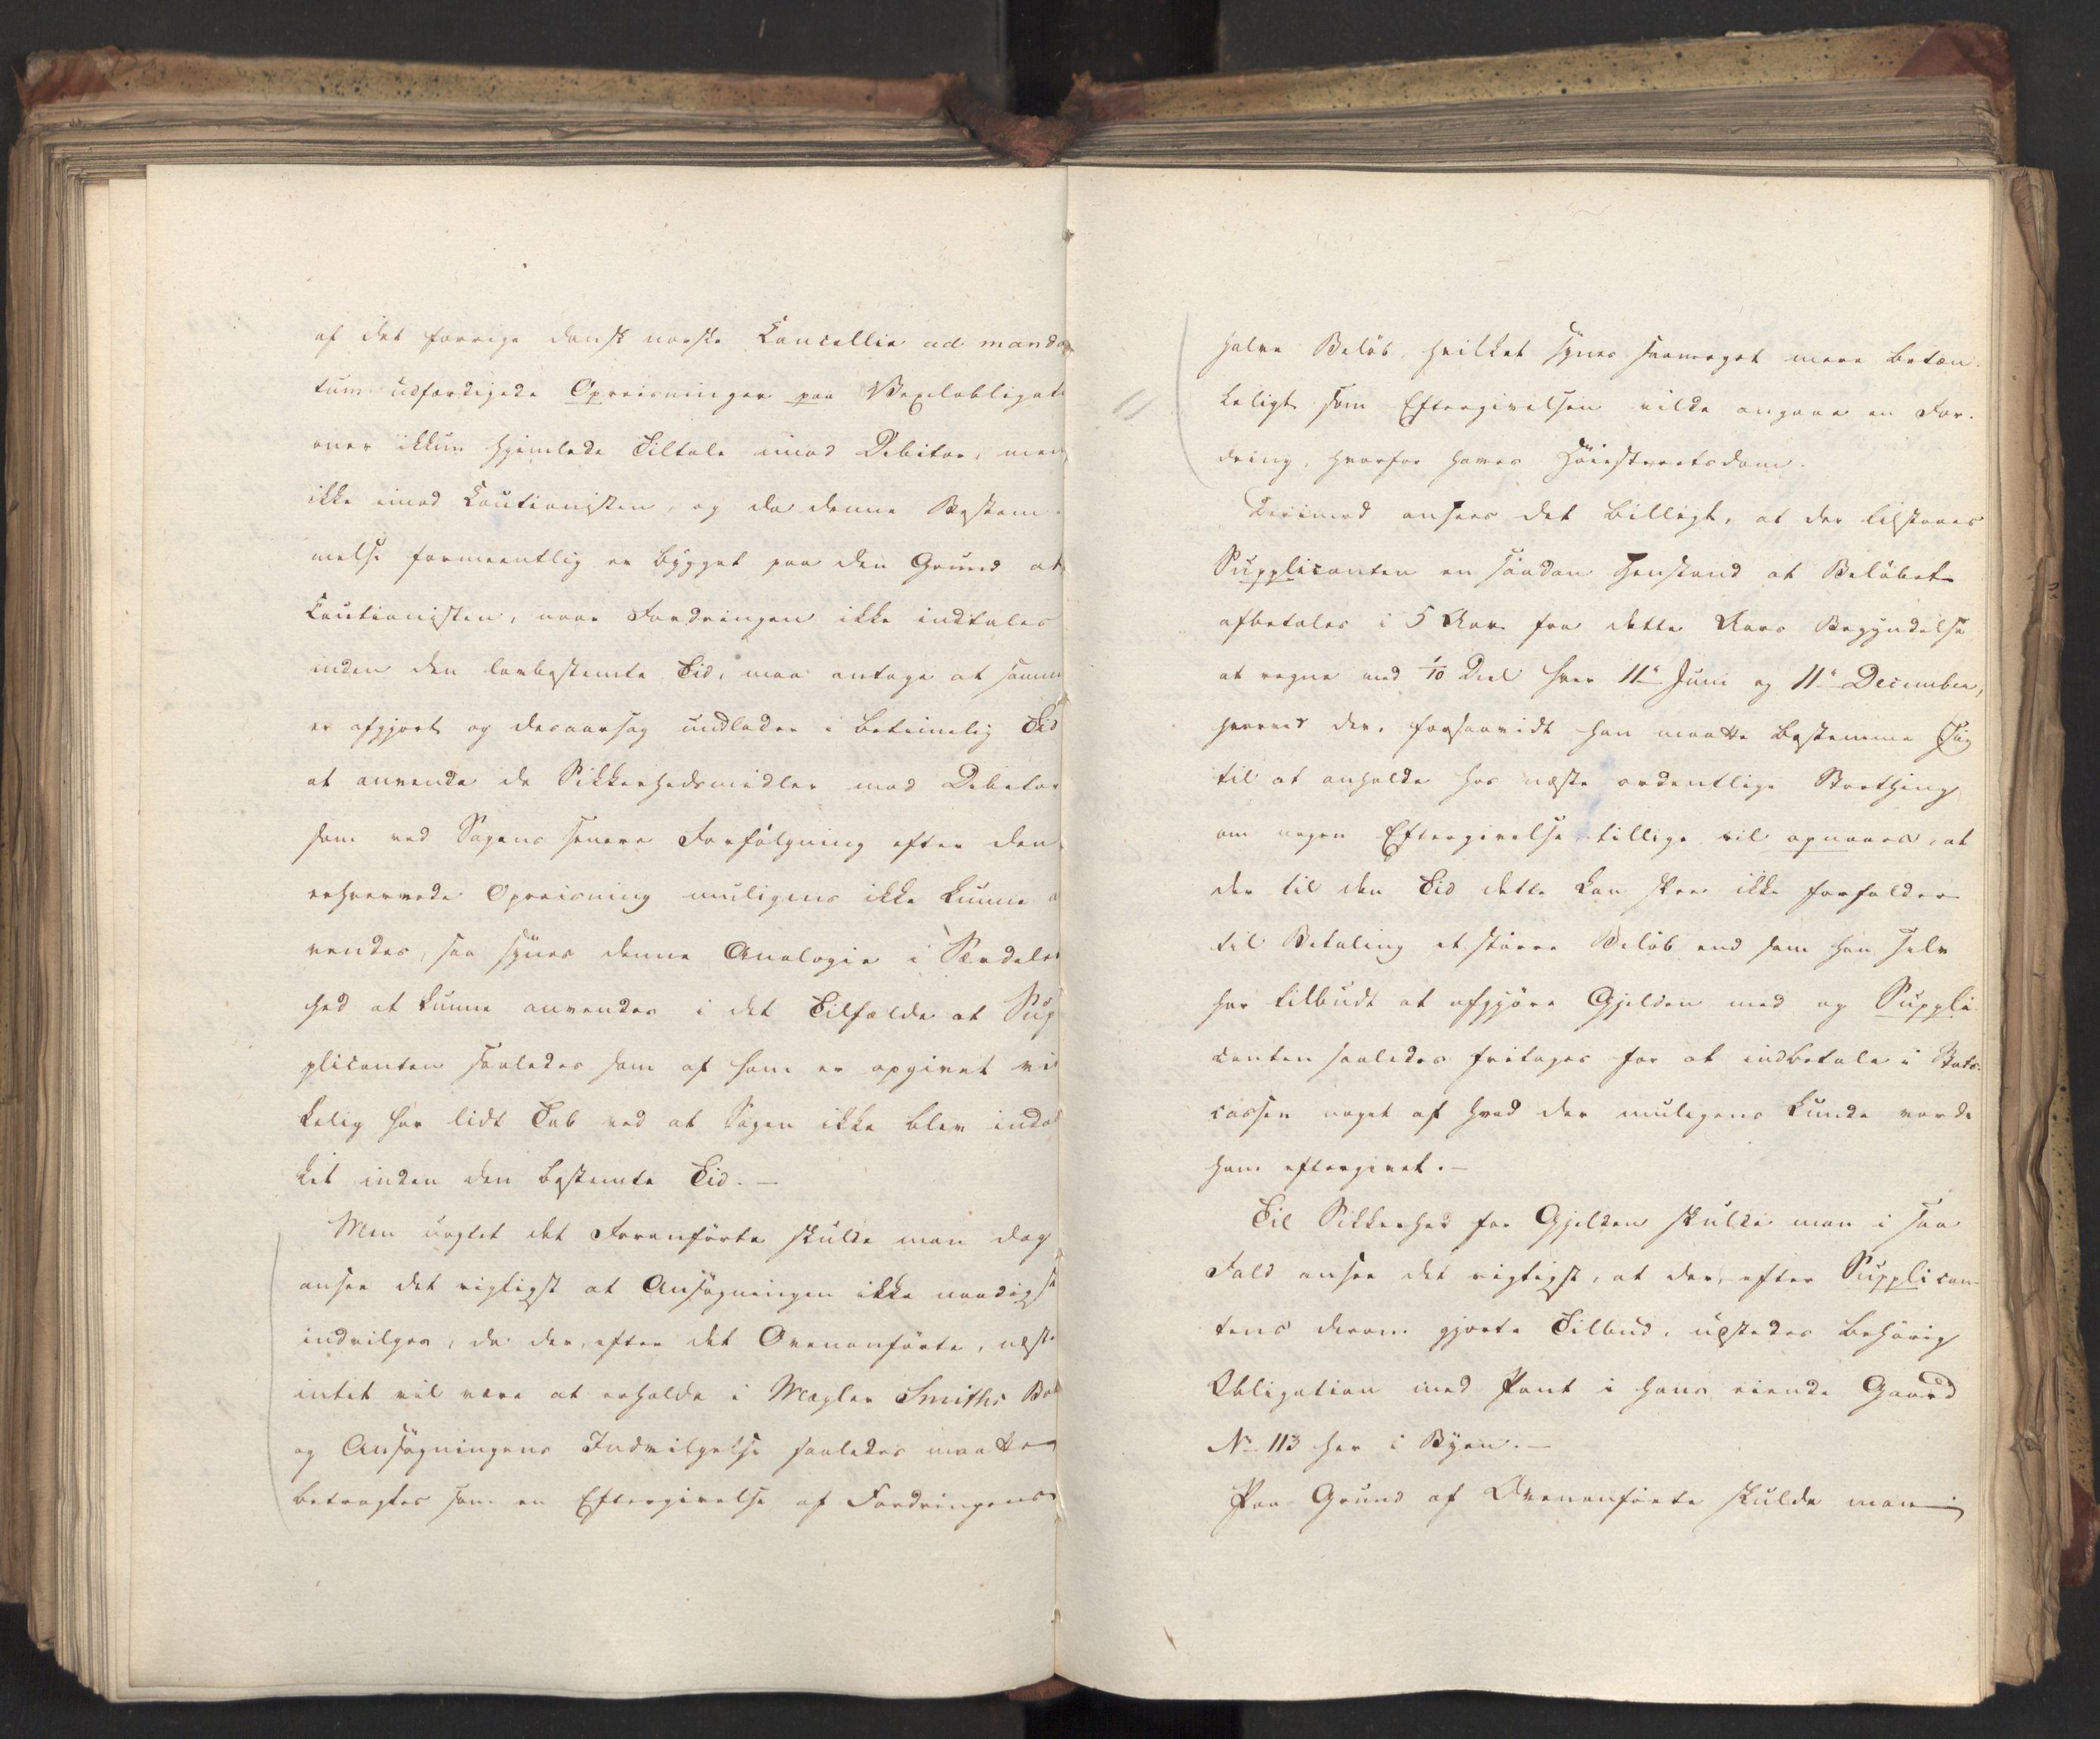 af det forrige dansk norske Cancellie ad manda
tum udfærdigede Opreisninger paa Vexelobligati
oner ikkun hjemlede Tiltale imod Debitor, men
ikke imod Cautionisten, og da denne Bestem-
melse formeentlig er bygget paa den Grund at
Cautionisten, naar Fordringen ikke indtales
inden den lovbestemte Tid, maa antage at samme
er afgjort og desaarsag undlader i betimelig Tid
at anvende de Sikkerhedsmidler mod Debitor
som ved Sagens senere Forfølgning efter den
erhvervede Opreisning muligens ikke kunne a
vendes, saa synes denne Analogie i Særdeles
hed at kunne anvendes i det Tilfælde at Sup
plicanten saaledes som af ham er opgivet vir
kelig har lidt Tab ved at Sagen ikke blev indan
ket inden den bestemte Tid. —
Men uagtet det Foranførte skulde man dog
ansee det rigtigst at Ansøgningen ikke naadigst
indvilges, da der, efter det Ovenanførte, næste
intet vil være at erholde i Mægler Smiths Bo
og Ansøgningens Indvilgelse saaledes maatte
betragtes som en Eftergivelse af Fordringens
halve Beløb, hvilket synes saameget mere betæn-
keligt som Eftergivelsen vilde angaae en For-
dring, hvorfor haves Høiesteretsdom.
Derimod ansees det billigt, at der tilstaaes
Supplicanten en saadan Henstand at Beløbet
afbetales i 5 Aar fra dette Aars Begyndelse
at regne med 1/10 Deel hver 11te Juni og 11te December,
hvorved der, forsaavidt han maatte bestemme sig
til at anholde hos næste ordentlige Storthing
om nogen Eftergivelse tillige vil opnaaes, at
der til den Tid dette kan skee ikke forfalder
til Betaling et større Beløb end som han selv
har tilbudt at afgjøre Gjelden med og Suppli
canten saaledes fritages for at indbetale i Stats-
cassen noget af hvad der muligens kunde vorde
ham eftergivet. —
Til Sikkerhed for Gjelden skulde man i saa
Fald ansee det rigtigst, at der, efter Supplican-
tens derom gjorte Tilbud, udstedes behørig
Obligation med Pant i hans eiende Gaard
No 113 her i Byen. —
Paa Grund af Ovenanførte skulde man